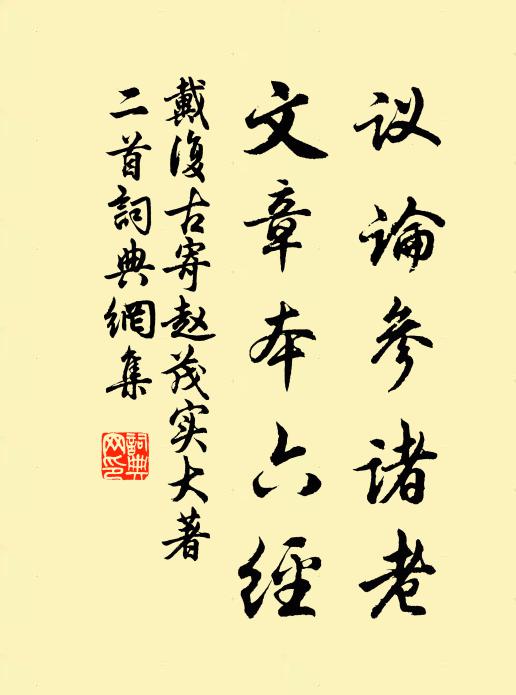 议论参诸老
文章本六经
戴復古寄赵茂实大著
二首詞典網集
詞典
网印